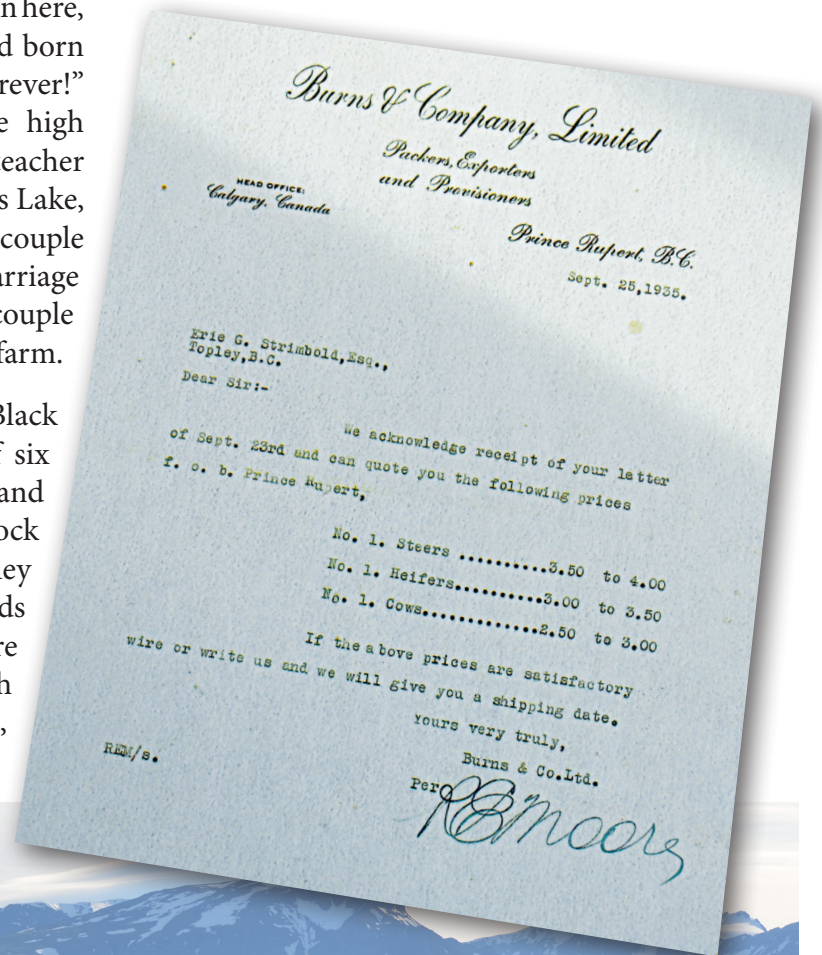 n here,
d born
rever!”
e high
teacher
s Lake,
couple
arriage
couple
farm.
Black
f six
and
ock
ey
ds
re
h
,
Burns & Company, Limited
Packers, Exporters
and Provisioners
HEAD OFFICE:
Calgary, Canada
Prince Rupert, B.C.
Sept. 25,1935.
Erie G. Strimbold,Esq.,
Topley,B.C.
Dear Sir:-
We acknowledge receipt of your letter
of Sept. 23rd and can quote you the following prices
f. o. b. Prince Rupert,
No. 1. Steers ..........3.50 to 4.00
No. 1. Heifers..........3.00 to 3.50
No. 1. Cows.............2.50 to 3.00
If the above prices are satisfactory
wire or write us and we will give you a shipping date.
Yours very truly,
Burns & Co.Ltd.
REM/s.
Per
REMoore